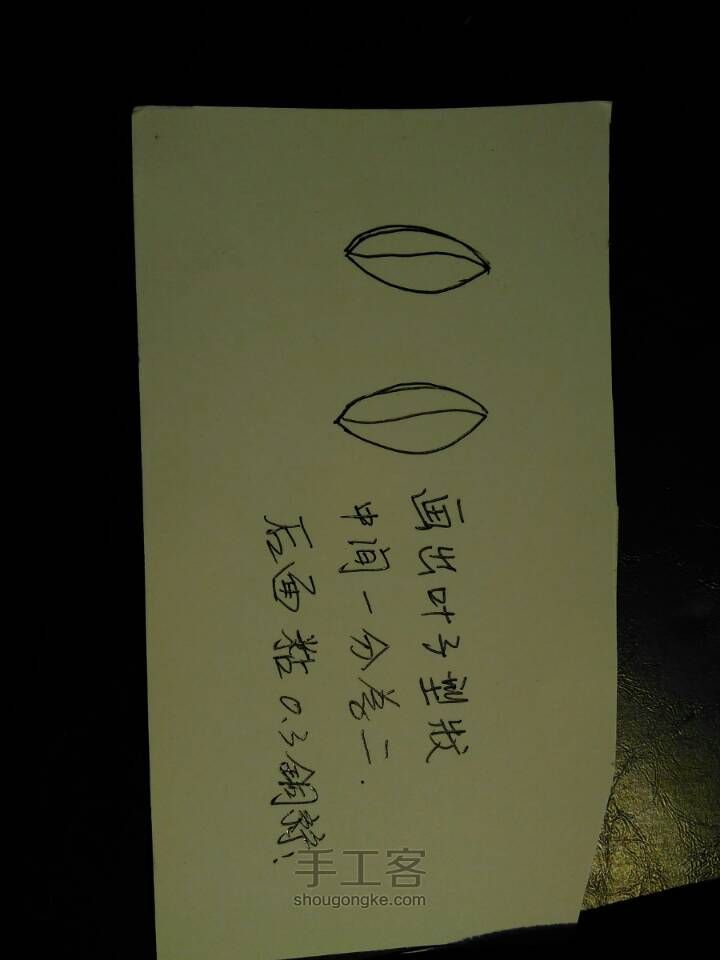 画出叶子型状
中间一分为二.
后面粘0.3铜丝!
手工客
shougongke.com